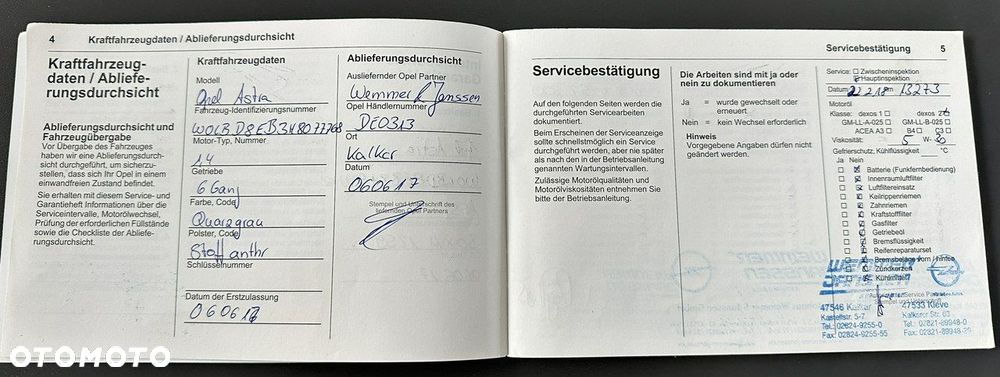 4 Kraftfahrzeugdaten / Ablieferungsdurchsicht
Kraftfahrzeug-
daten / Abliefe-
rungsdurchsicht
Ablieferungsdurchsicht und
Fahrzeugübergabe
Vor Übergabe des Fahrzeuges
haben wir eine Ablieferungsdurch-
sicht durchgeführt, um sicherzu-
stellen, dass sich Ihr Opel in einem
einwandfreien Zustand befindet.
Sie erhalten mit diesem Service- und
Garantieheft Informationen über die
Serviceintervalle, Motorölwechsel,
Prüfung der erforderlichen Füllstände
sowie die Checkliste der Abliefe-
rungsdurchsicht.
Kraftfahrzeugdaten
Modell
Opel Astra
Fahrzeug-Identifizierungsnummer
Motor-Typ, Nummer
1.4
Getriebe
6 Gang
Farbe, Code
Quarzgrau
Polster, Code
Stoff anthr
Schlüsselnummer
Datum der Erstzulassung
060617
Ablieferungsdurchsicht
Ausliefernder Opel Partner
Wemmer & Janssen
Opel Händlernummer
DE0313
Ort
Kalkar
Datum
060617
Stempel und Unterschrift des
liefernden Opel Partners
Servicebestätigung 5
Servicebestätigung
Auf den folgenden Seiten werden die
durchgeführten Servicearbeiten
dokumentiert.
Beim Erscheinen der Serviceanzeige
sollte schnellstmöglich ein Service
durchgeführt werden, aber nie später
als nach den in der Betriebsanleitung
genannten Wartungsintervallen.
Zulässige Motorölqualitäten und
Motorölviskositäten entnehmen Sie
bitte der Betriebsanleitung.
Die Arbeiten sind mit ja oder
nein zu dokumentieren
Ja = wurde gewechselt oder
erneuert
Nein = kein Wechsel erforderlich
Hinweis
Vorgegebene Angaben dürfen nicht
geändert werden.
Service: Zwischeninspektion
Hauptinspektion
Datum 22.2.18 km 13273
Motoröl
Klasse: dexos 1 dexos 2
GM-LL-A-025 GM-LL-B-025
ACEA A3 B4 C3
Viskosität: 5 W- 30
Gefrierschutz, Kühlflüssigkeit °C
Ja Nein
Batterie (Funkfernbedienung)
Innenraumluftfilter
Luftfiltereinsatz
Keilrippenriemen
Zahnriemen
Kraftstofffilter
Gasfilter
Getriebeöl
Bremsflüssigkeit
Reifenreparaturset
Bremsbeläge vorn / hinten
Zündkerzen
WEMMER
JANSSEN
47546 Kalkar 47533 Kleve
Kastellstr. 5-7 Kalkarer Str. 63
Tel.: 02824-9255-0 Tel.: 02821-89948-0
Fax: 02824-9255-55
OTOMOTO